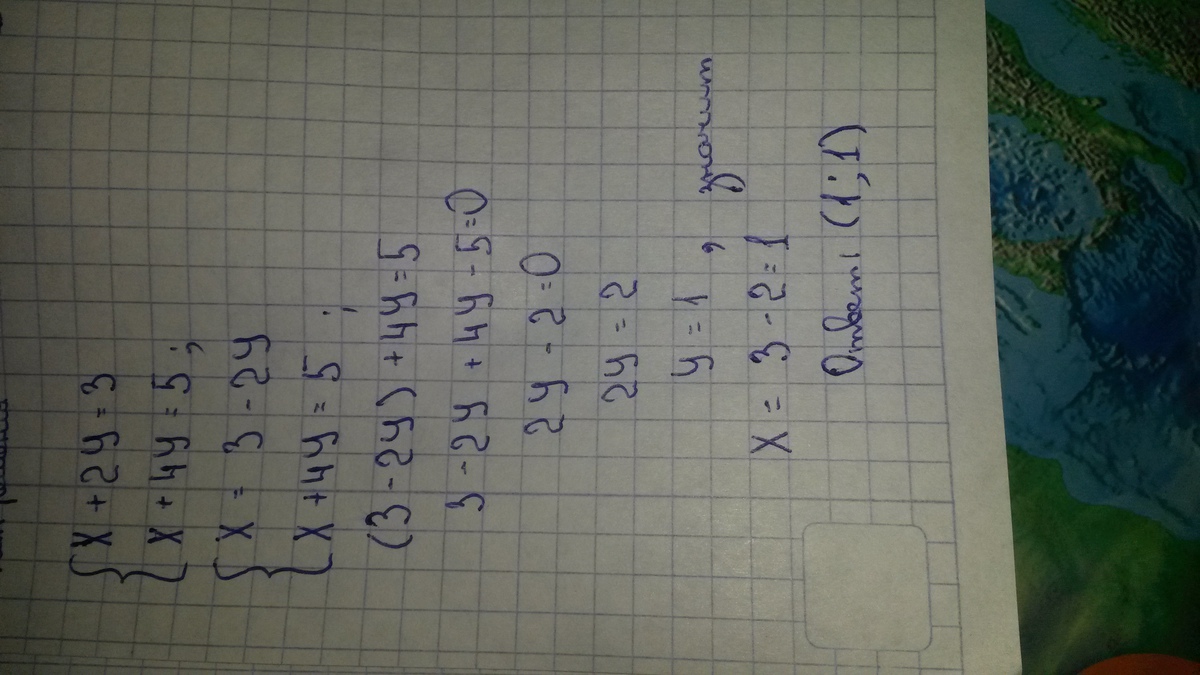 { x + 2y = 3
{ x + 4y = 5 ;
{ x = 3 - 2y
{ x + 4y = 5 ;
(3 - 2y) + 4y = 5
3 - 2y + 4y - 5 = 0
2y - 2 = 0
2y = 2
y = 1 , значит
x = 3 - 2 = 1
Ответ: (1 ; 1)